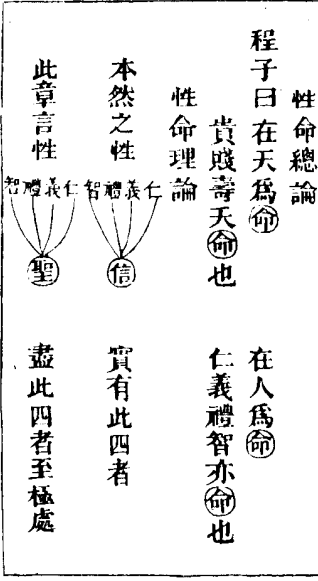 性命總論
程子曰在天爲命 在人爲命
貴賤壽夭命也 仁義禮智亦命也
性命理論
本然之性
仁義禮智
信
實有此四者
此章言性
仁義禮智
聖
盡此四者至極處